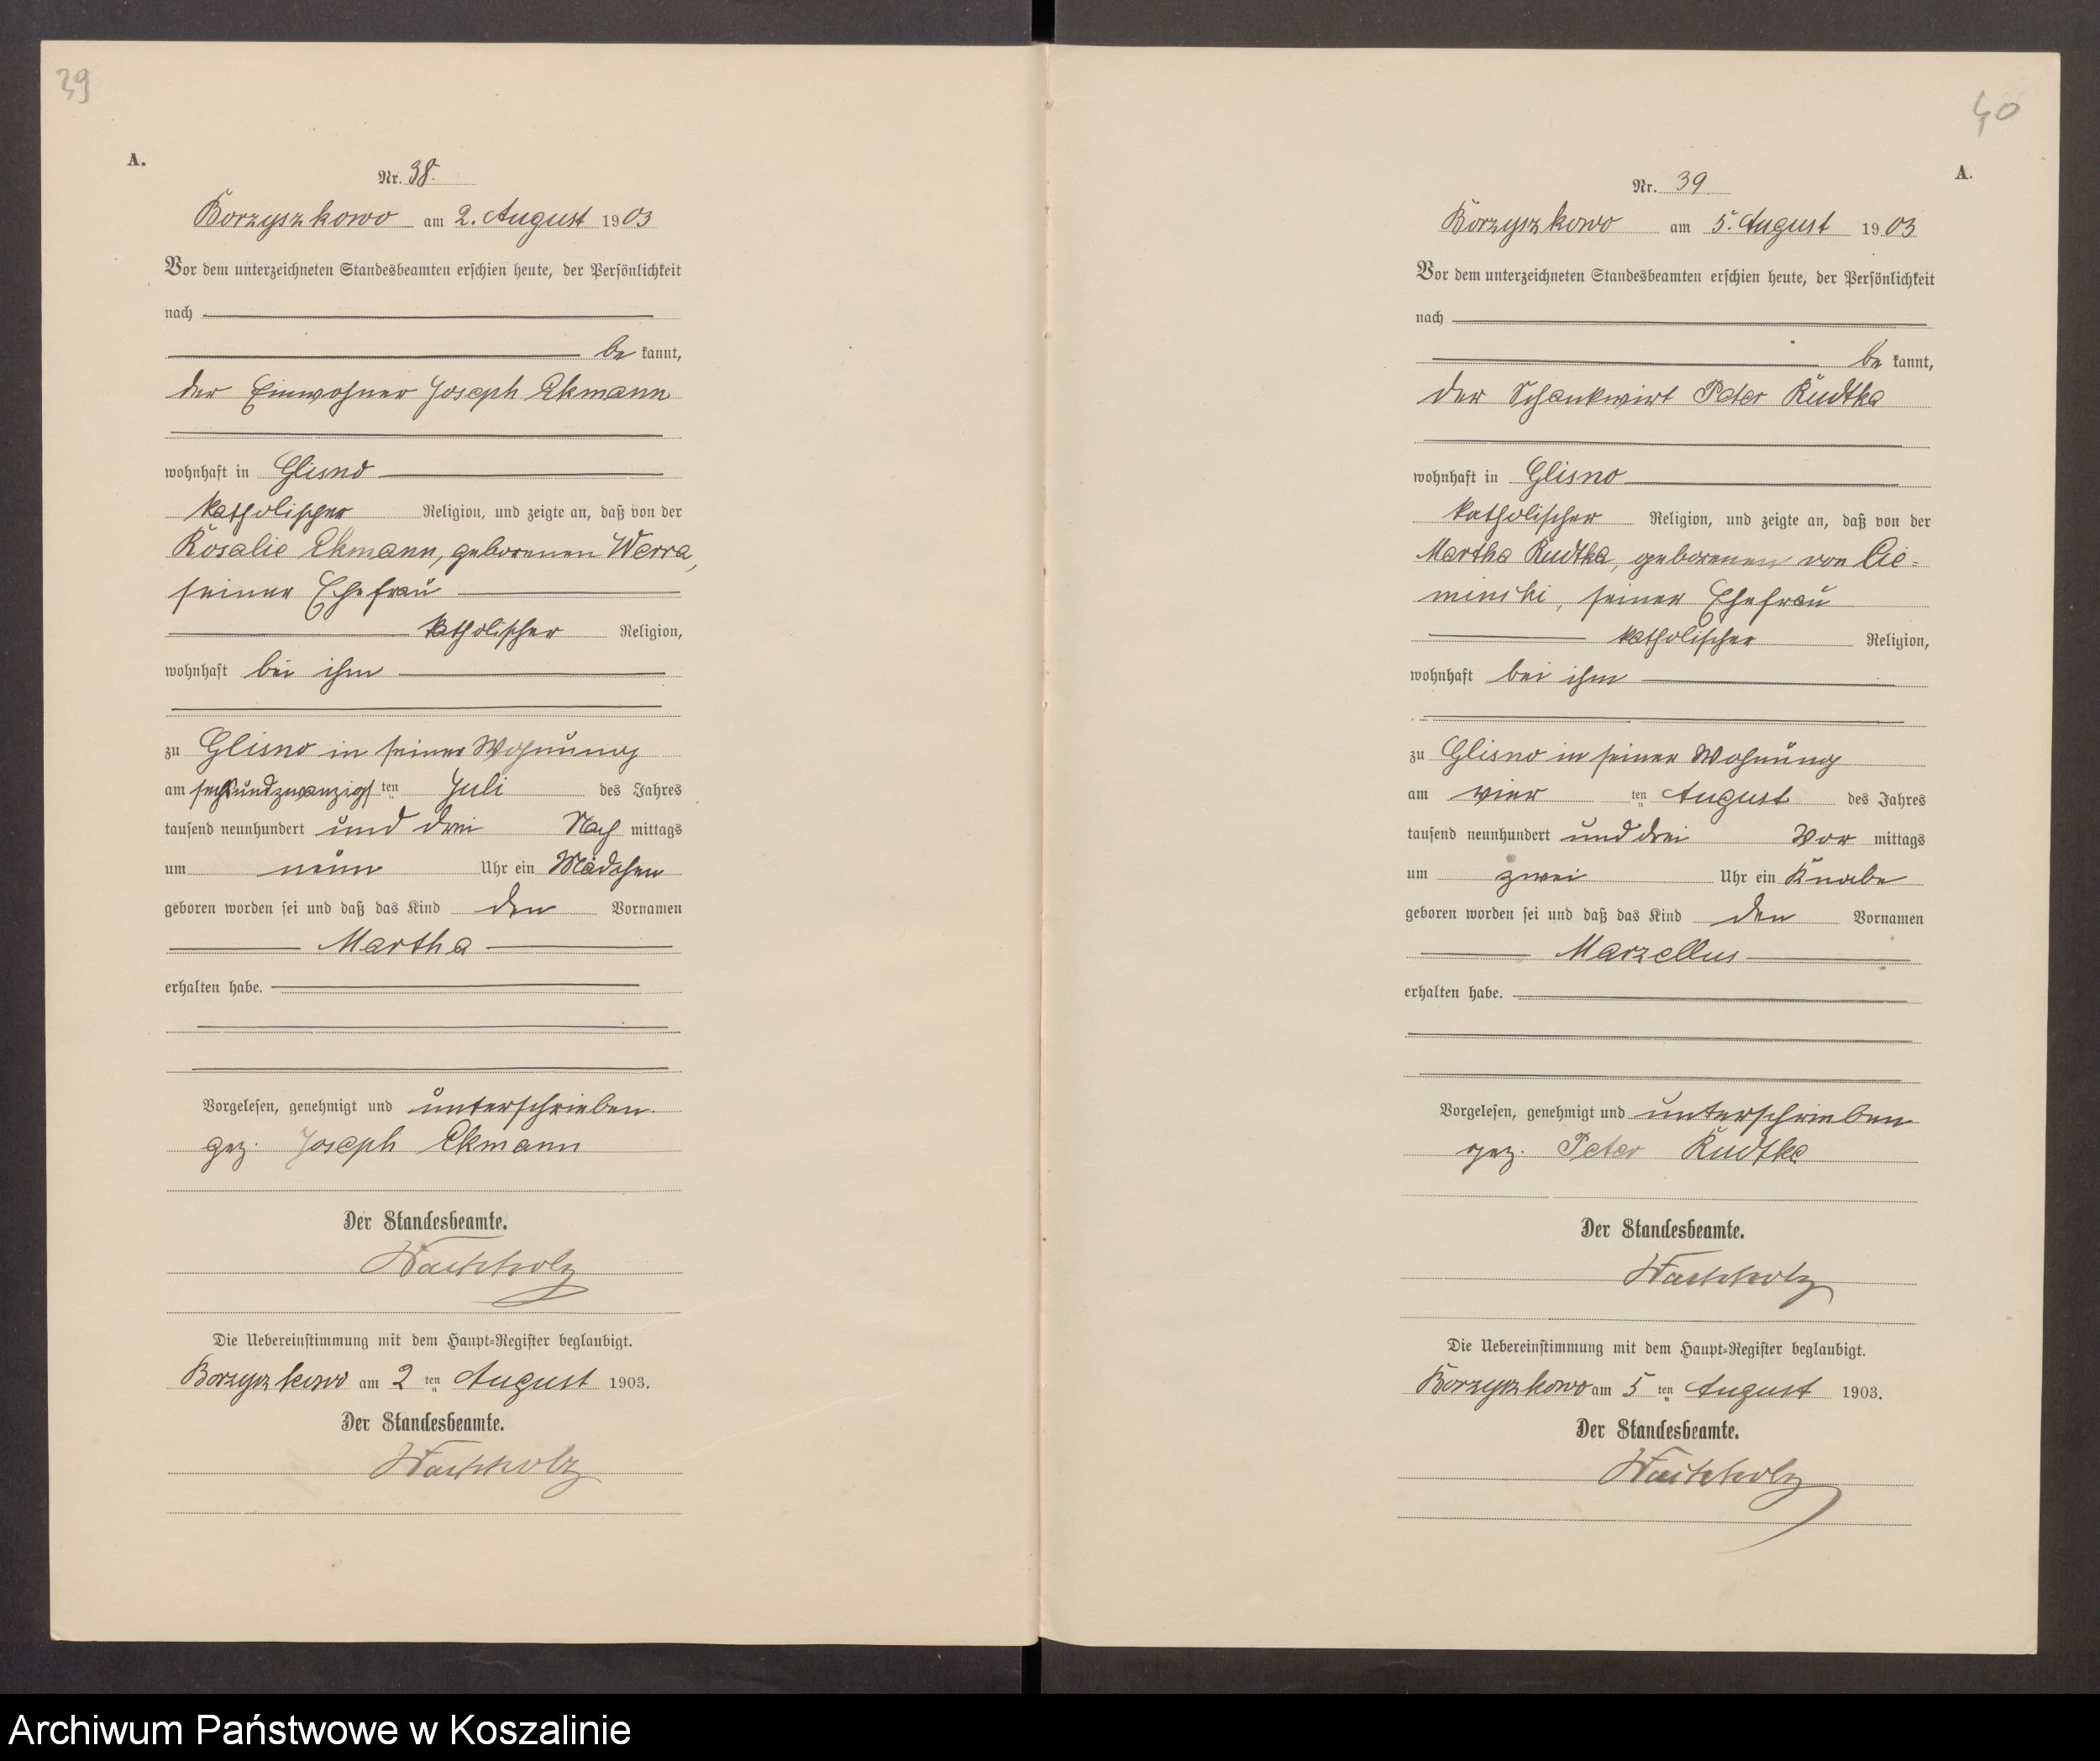 39
A.
Nr. 38.
Borzyszkowo am 2. August 1903
Vor dem unterzeichneten Standesbeamten erschien heute, der Persönlichkeit
nach
be kannt,
der Einwohner Joseph Ekmann
wohnhaft in Glisno
katholischer Religion, und zeigte an, daß von der
Rosalie Ekmann, geborenen Werra,
seiner Ehefrau
katholischer Religion,
wohnhaft bei ihm
zu Glisno in seiner Wohnung
am sechsundzwanzigsten Juli des Jahres
tausend neunhundert und drei Nach mittags
um neun Uhr ein Mädchen
geboren worden sei und daß das Kind den Vornamen
Martha
erhalten habe.
Vorgelesen, genehmigt und unterschrieben.
gez. Joseph Ekmann
Der Standesbeamte.
Die Uebereinstimmung mit dem Haupt-Register beglaubigt.
Borzyszkowo am 2 ten August 1903.
Der Standesbeamte.
40
A.
Nr. 39
Borzyszkowo am 5. August 1903
Vor dem unterzeichneten Standesbeamten erschien heute, der Persönlichkeit
nach
be kannt,
der Schankwirt Peter Rudtka
wohnhaft in Glisno
katholischer Religion, und zeigte an, daß von der
Martha Rudtka, geborenen von Cie=
minski, seiner Ehefrau
katholischer Religion,
wohnhaft bei ihm
zu Glisno in seiner Wohnung
am vier ten August des Jahres
tausend neunhundert und drei Vor mittags
um zwei Uhr ein Knabe
geboren worden sei und daß das Kind den Vornamen
Marzellus
erhalten habe.
Vorgelesen, genehmigt und unterschrieben
gez. Peter Rudtka
Der Standesbeamte.
Die Uebereinstimmung mit dem Haupt-Register beglaubigt.
Borzyszkowo am 5 ten August 1903.
Der Standesbeamte.
Archiwum Państwowe w Koszalinie